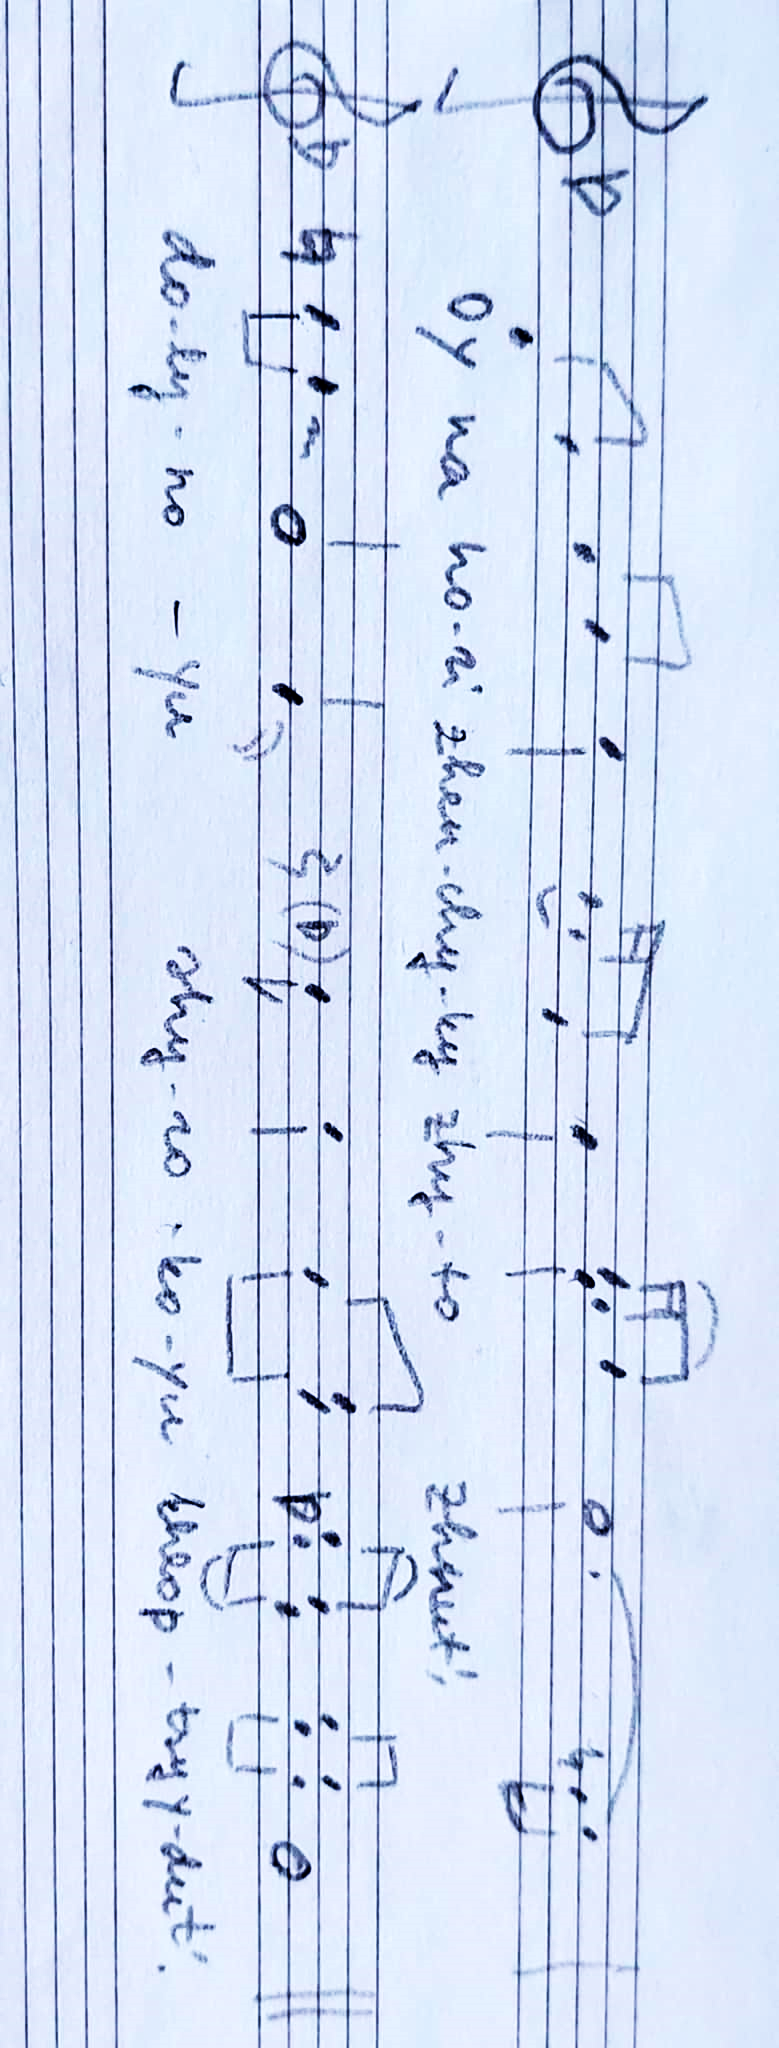 Oy na ho-ri zhen-chy-ky zhy-to zhnut',
do-ly-no-yu shy-ro-ko-yu kheop-tsy y-dut'.